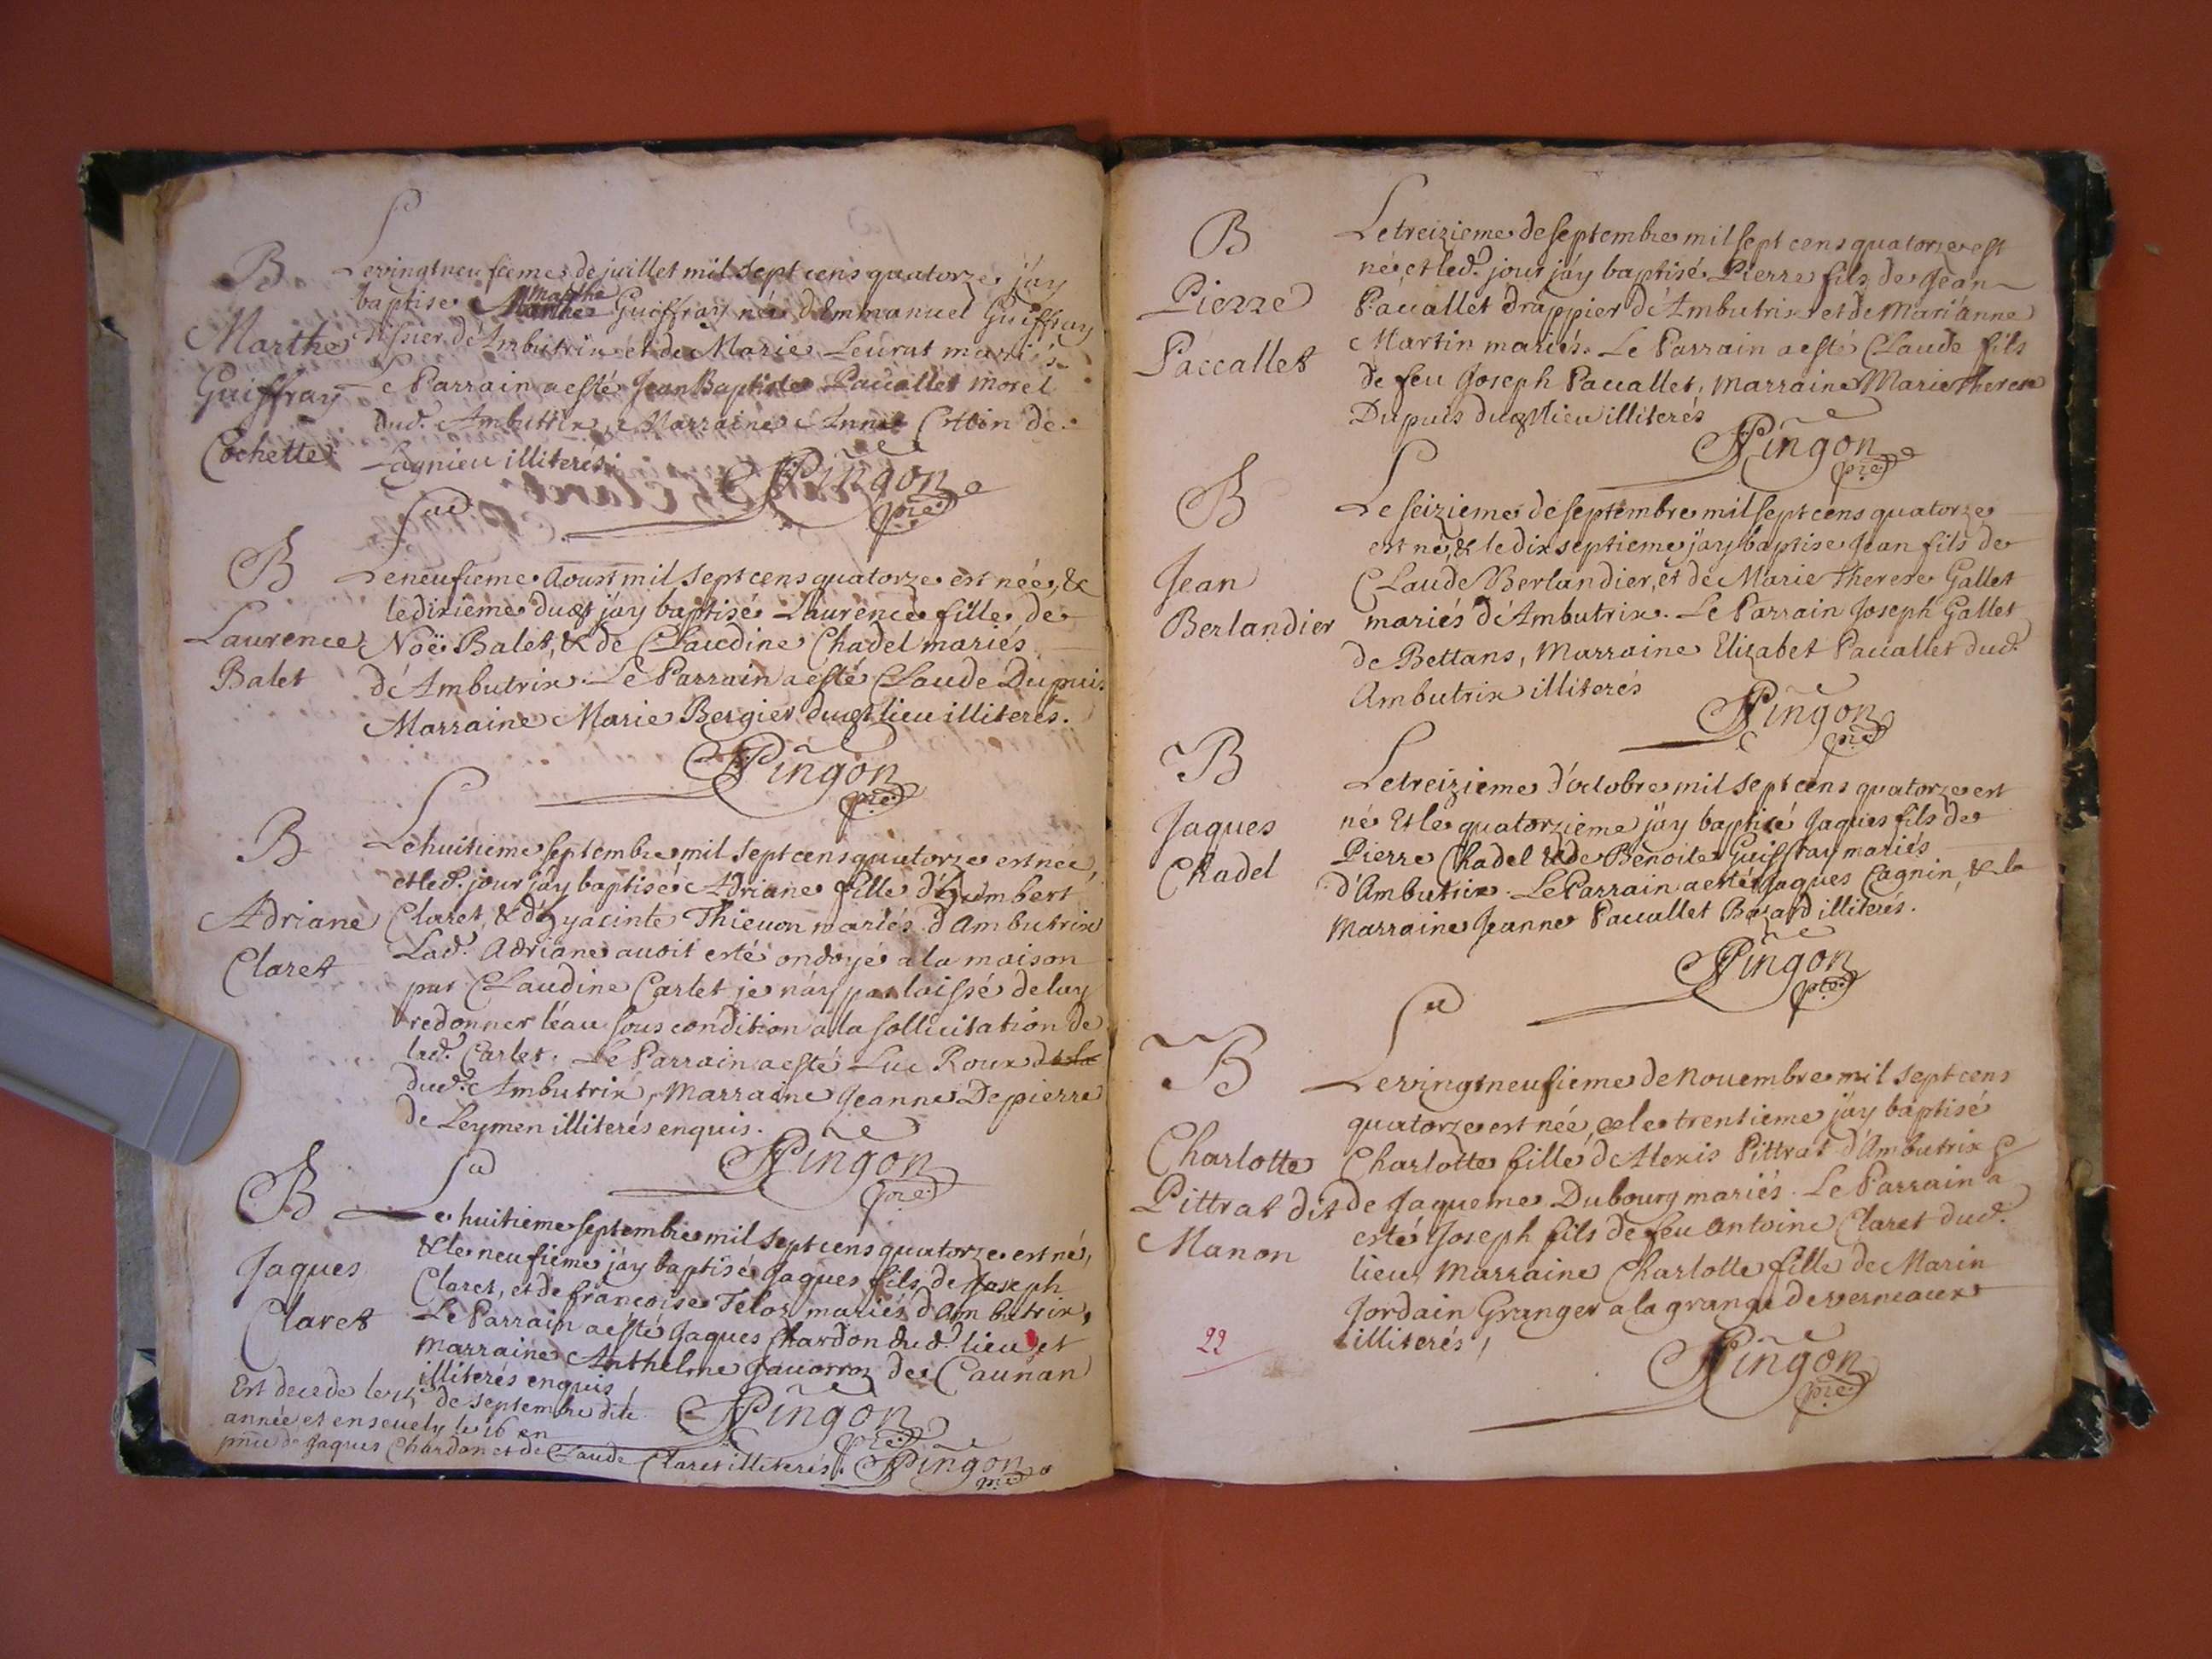 B
Marthe
Guiffray
Cochette
Le vingtneufieme de juillet mil sept cens quatorze j'ay
baptise Marthe Guiffray née d'Emmanuel Guiffray
tissier d'Ambutrix et de Marie Leurat mariés
Le Parrain a esté Jean Baptiste Pacallet morel
dud. Ambutrix, Marraine Anne Cottin de
Lagnieu illiterés.
Pingon
pre
B
Laurence
Balet
Le neufieme Aoust mil sept cens quatorze est née, &
le dixieme dud. j'ay baptisé Laurence fille de
Noë Balet, & de Claudine Chadel mariés
d'Ambutrix. Le Parrain a esté Claude Dupuis
Marraine Marie Bergier dud. lieu illiterés.
Pingon
pre
B
Adriane
Claret
Le huitieme septembre mil sept cens quatorze est née,
et led. jour j'ay baptisé Adriane fille d'humbert
Claret, & d'hyacinte Thieuon mariés d'Ambutrix
Lad. Adriane auoit esté ondoyé a la maison
par Claudine Carlet je n'ay pas laissé de luy
redonner l'eau sous condition a la sollicitation de
lad. Carlet. Le Parrain a esté Luc Roux de la
dud. Ambutrix, Marraine Jeanne Depierre
de Leymen illiterés enquis.
Pingon
pre
B
Jaques
Claret
Le huitieme septembre mil sept cens quatorze est né,
& le neufieme j'ay baptisé Jaques fils de Joseph
Claret, et de francoise Teloz mariés d'Ambutrix,
Le Parrain a esté Jaques Chardon dud. lieu et
marraine Anthelme Jauorroz de Caunan
illiterés enquis
Pingon
pre
Est decede le 15 de septembre dite
année et enseuely le 16 en
pnce de Jaques Chardon et de Claude Claret illiterés. Pingon
pre
B
Pierre
Paccallet
Le treizieme de septembre mil sept cens quatorze est
né et led. jour j'ay baptisé Pierre fils de Jean
Pacallet drappier d'Ambutrix et de Mari'anne
Martin mariés. Le Parrain a esté Claude fils
de feu Joseph Pacallet, marraine Marie Therese
Dupuis dud. lieu illiterés
Pingon
pre
B
Jean
Berlandier
Le seizieme de septembre mil sept cens quatorze
est né, & le dix septieme j'ay baptise Jean fils de
Claude Berlandier, et de Marie Therese Gallet
mariés d'Ambutrix. Le Parrain Joseph Gallet
de Bettans, Marraine Elizabet Pacallet dud.
Ambutrix illiterés
Pingon
pre
B
Jaques
Chadel
Le treizieme d'octobre mil sept cens quatorze est
né Et le quatorzieme j'ay baptisé Jaques fils de
Pierre Chadel & de Benoite Guiffray mariés
d'Ambutrix. Le Parrain a esté Jaques Cagnin, & la
Marraine Jeanne Pacallet Bazard illiterés.
Pingon
pre
B
Charlotte
Pittrat dit
Manon
Le vingtneufieme de Nouembre mil sept cens
quatorze est née, & le trentieme j'ay baptisé
Charlotte fille d'Alexis Pittrat d'Ambutrix &
de Jaqueme Dubourg mariés. Le Parrain a
esté Joseph fils de feu Antoine Claret dud.
lieu, Marraine Charlotte fille de Marin
Jordain Granger a la grange de verneaux
illiterés,
Pingon
pre
22